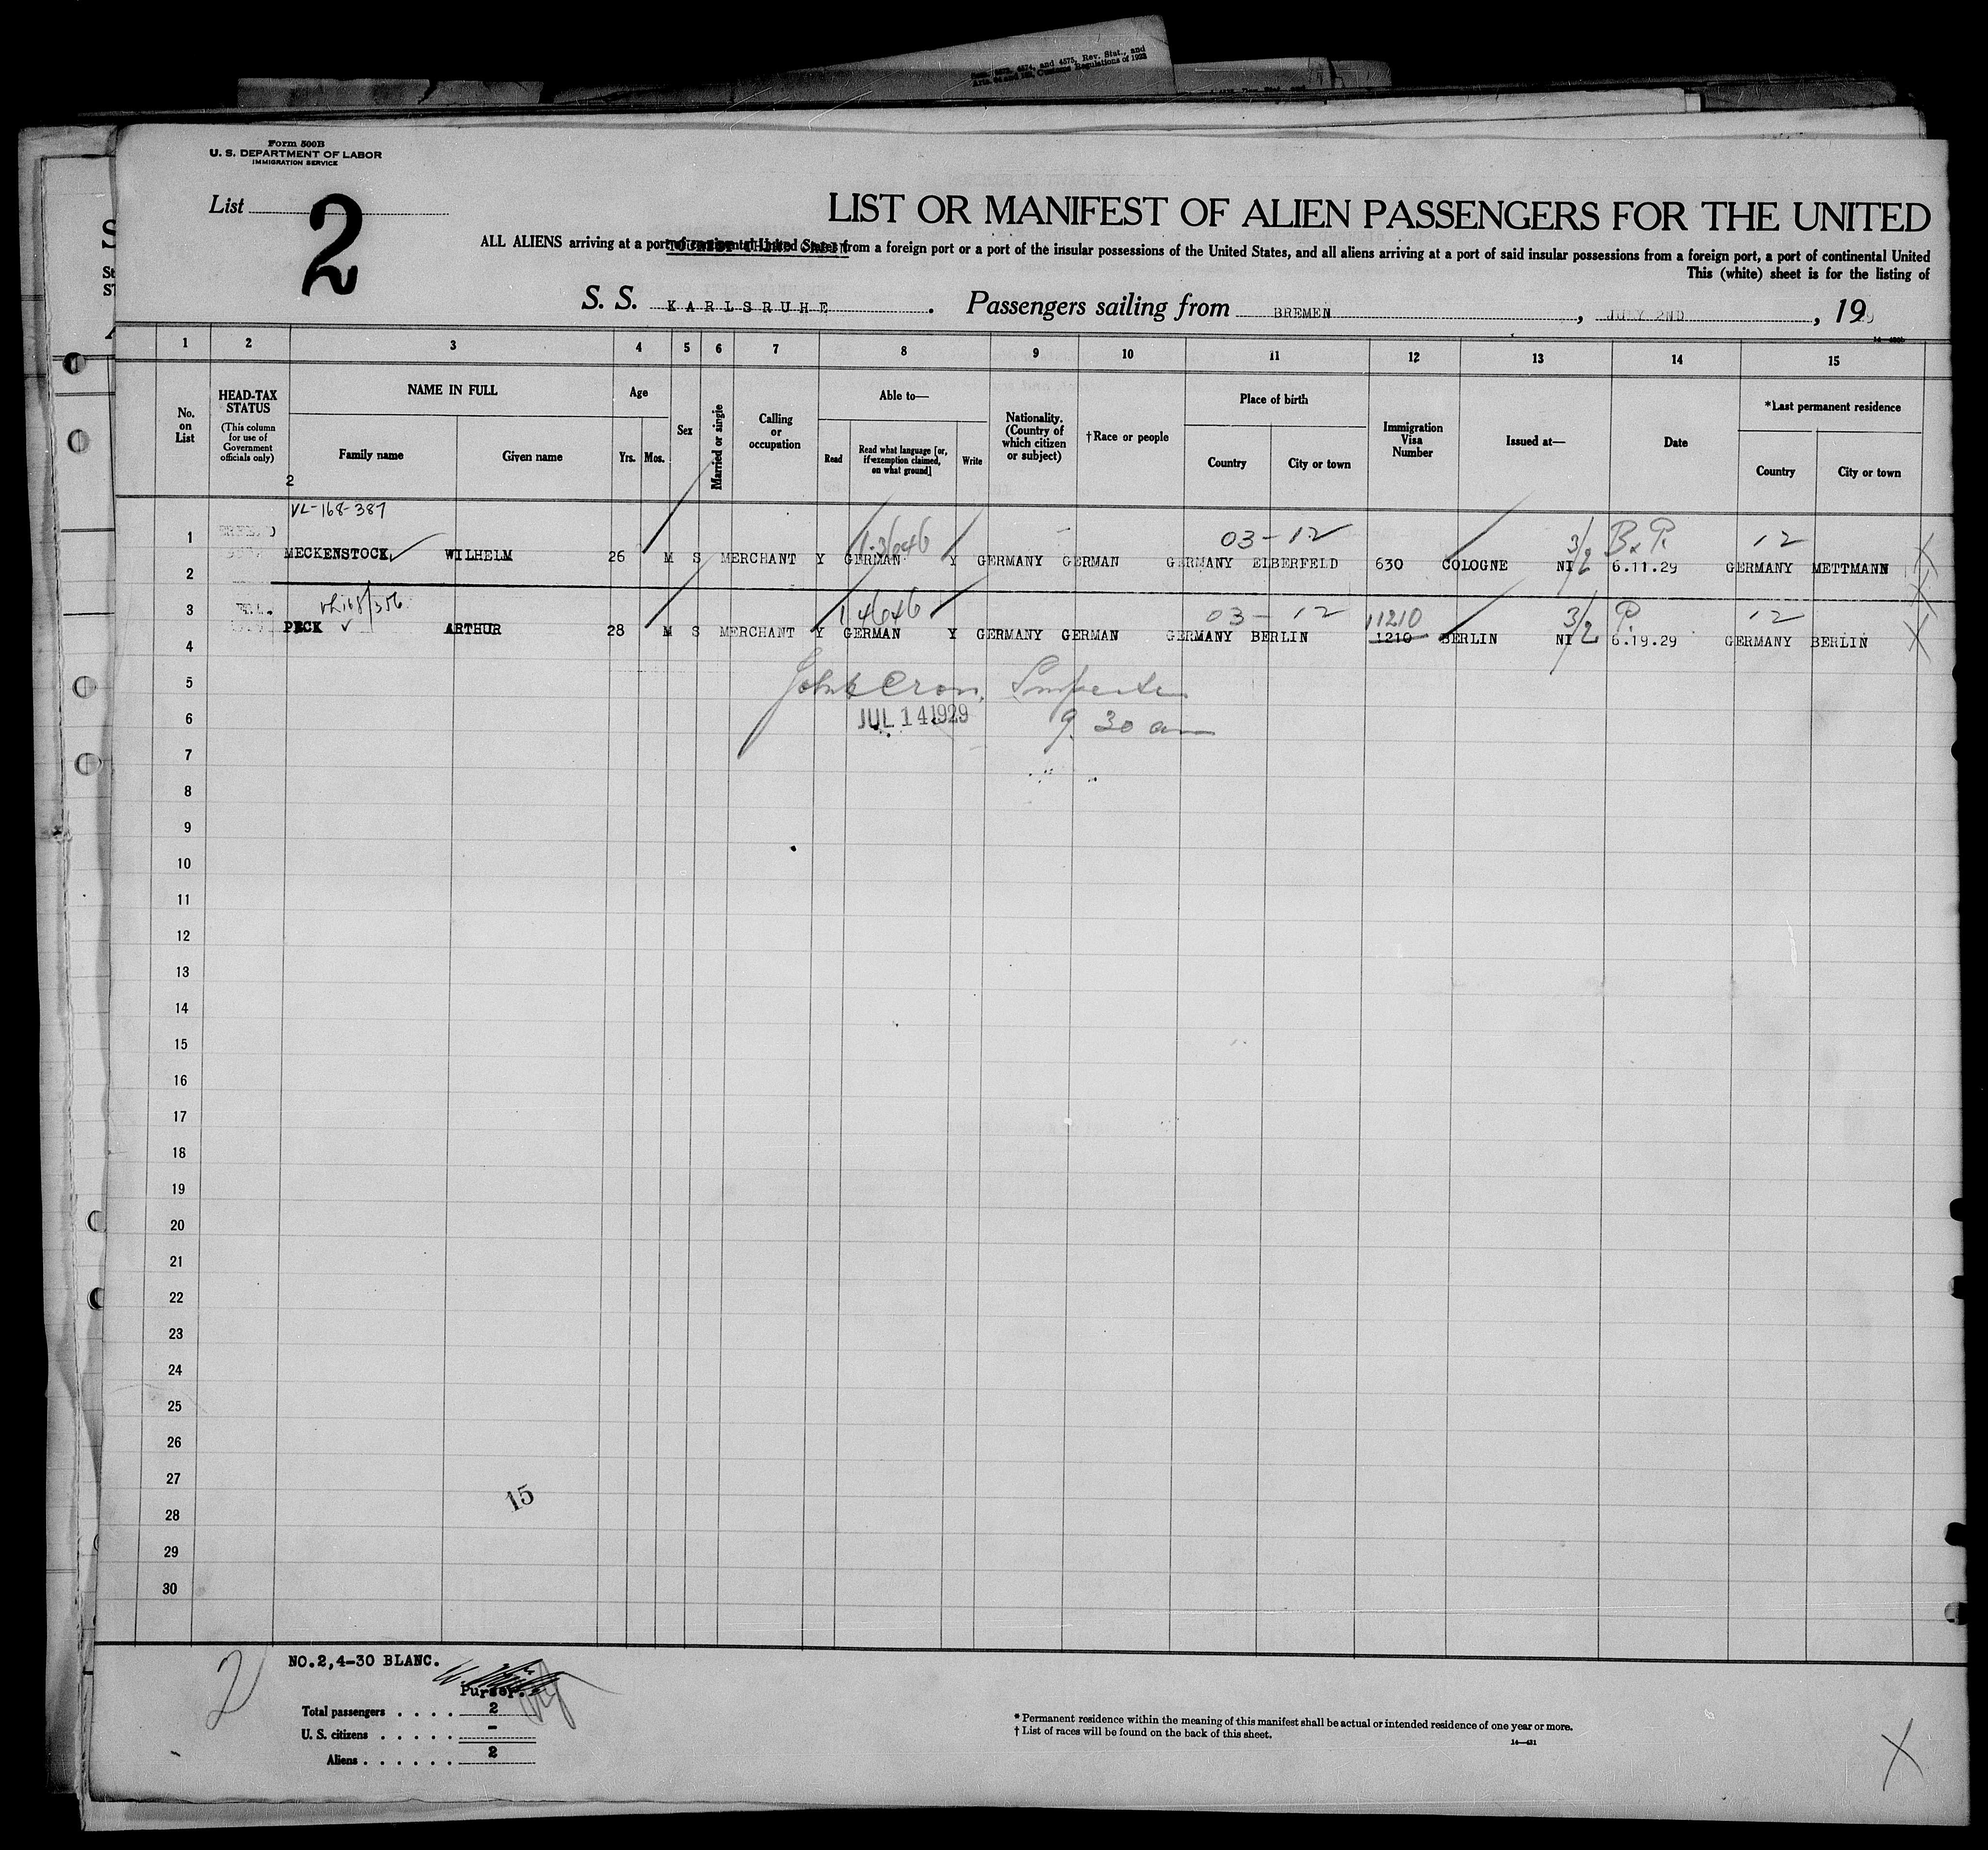 Secs. 4573, 4574, and 4575, Rev. Stat., and
Customs Regulations of 1923
Form 500B
U. S. DEPARTMENT OF LABOR
IMMIGRATION SERVICE
List 2
LIST OR MANIFEST OF ALIEN PASSENGERS FOR THE UNITED
ALL ALIENS arriving at a port of continental United States from a foreign port or a port of the insular possessions of the United States, and all aliens arriving at a port of said insular possessions from a foreign port, a port of continental United
This (white) sheet is for the listing of
S. S. KARLSRUHE. Passengers sailing from BREMEN, JULY 2ND, 1929
1 2 3 4 5 6 7 8 9 10 11 12 13 14 15
No. on List
HEAD-TAX STATUS
(This column for use of Government officials only)
NAME IN FULL
Family name
Given name
Age
Yrs. Mos.
Sex
Married or single
Calling or occupation
Able to—
Read
Read what language [or, if exemption claimed, on what ground]
Write
Nationality. (Country of which citizen or subject)
†Race or people
Place of birth
Country
City or town
Immigration Visa Number
Issued at—
Date
*Last permanent residence
Country
City or town
2
VL-168-387
03-12 3/2 B. P. 12
1 MECKENSTOCK WILHELM 26 M S MERCHANT Y GERMAN Y GERMANY GERMAN GERMANY ELBERFELD 630 COLOGNE NI 6.11.29 GERMANY METTMANN X
2
03-12 11210 3/2 P. 12
3 PECK ARTHUR 28 M S MERCHANT Y GERMAN Y GERMANY GERMAN GERMANY BERLIN 1210 BERLIN NI 6.19.29 GERMANY BERLIN X
4
5
6 JUL 14 1929 9.30 am
7
8
9
10
11
12
13
14
15
16
17
18
19
20
21
22
23
24
25
26
27
15
28
29
30
2
NO.2,4-30 BLANC.
Purser.
Total passengers . . . . 2
U. S. citizens . . . . . -
Aliens . . . . . . 2
* Permanent residence within the meaning of this manifest shall be actual or intended residence of one year or more.
† List of races will be found on the back of this sheet.
14—431
X